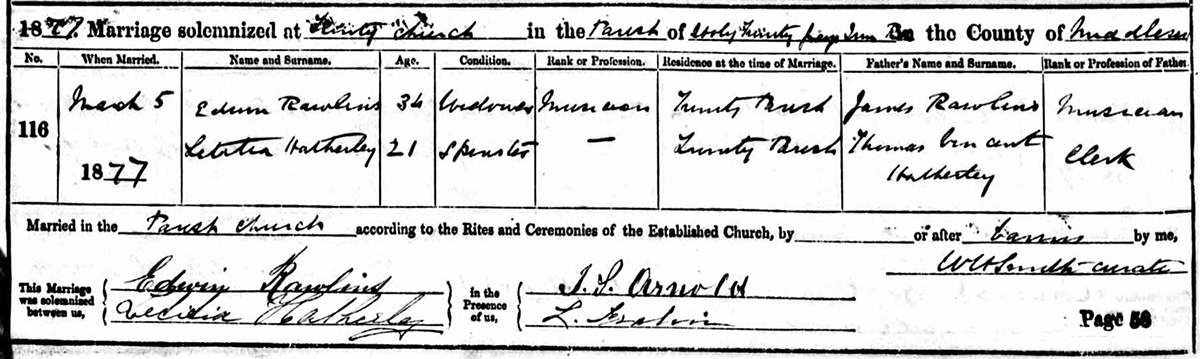 1877. Marriage solemnized at Trinity Church in the Parish of Holy Trinity Grays Inn Rd in the County of Middlesex
No. When Married. Name and Surname. Age. Condition. Rank or Profession. Residence at the time of Marriage. Father's Name and Surname. Rank or Profession of Father.
March 5 Edwin Rawlins 34 Widower Musician Trinity Parish James Rawlins Musician
116 Letitia Hatherley 21 Spinster — Trinity Parish Thomas Vincent Clerk
1877 Hatherley
Married in the Parish Church according to the Rites and Ceremonies of the Established Church, by or after banns by me,
WH Smith curate
This Marriage was solemnized between us,
Edwin Rawlins
Hatherley
in the Presence of us,
J. S. Arnold
L.
Page 58